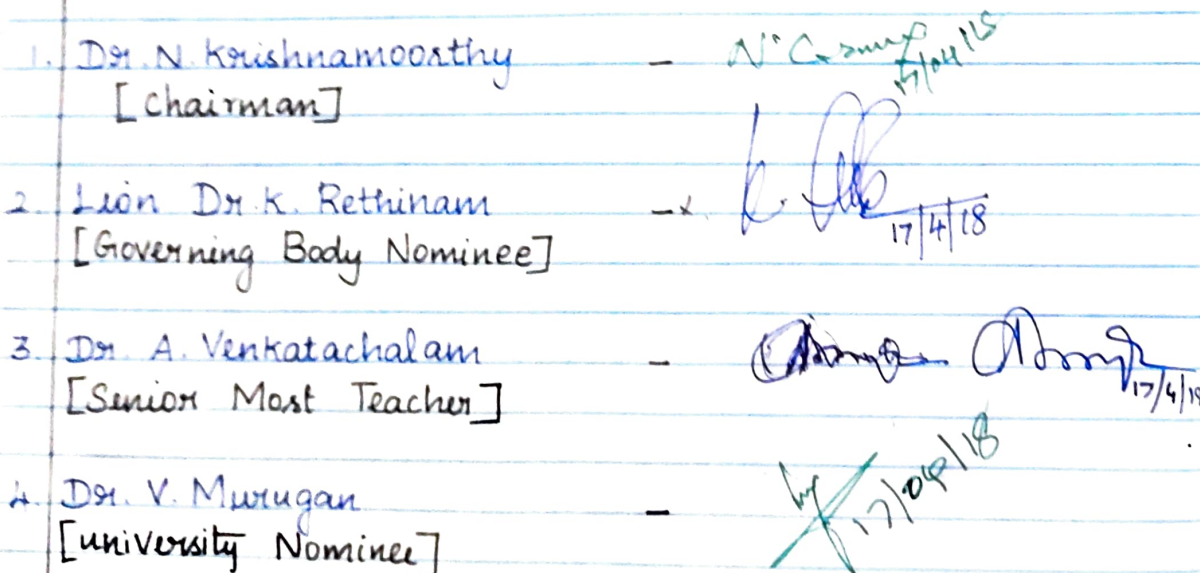 1. Dr. N. Krishnamoorthy -
17/04/18
[Chairman]
2. Lion Dr. K. Rethinam - x. K.
17/4/18
[Governing Body Nominee]
3. Dr. A. Venkatachalam -
17/4/18
[Senior Most Teacher]
4. Dr. V. Murugan -
17/04/18
[University Nominee]